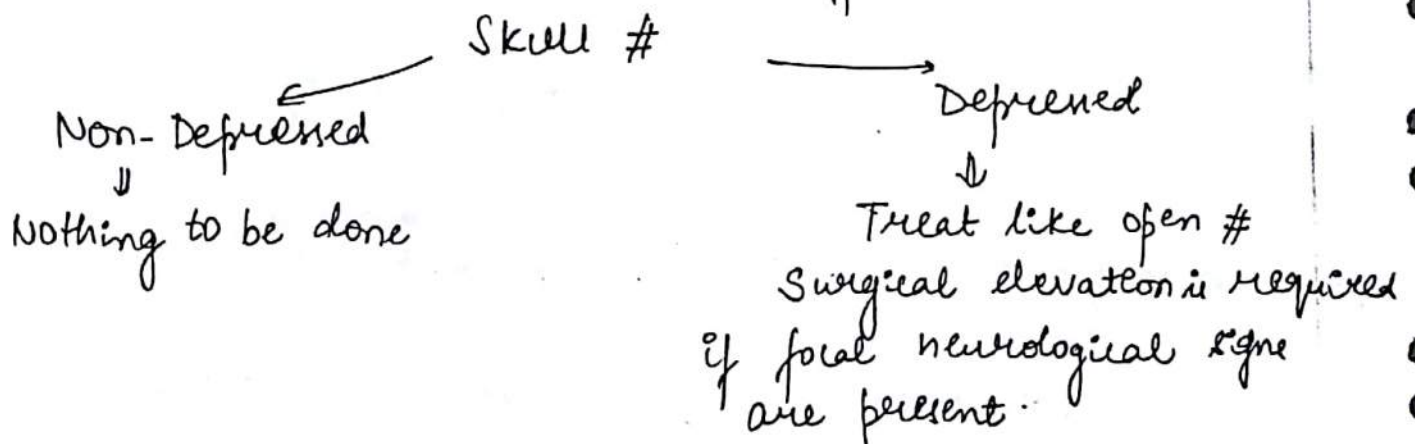 Skull #
Non-Depressed
Depressed
Nothing to be done
Treat like open #
Surgical elevation is required
if focal neurological signs
are present.